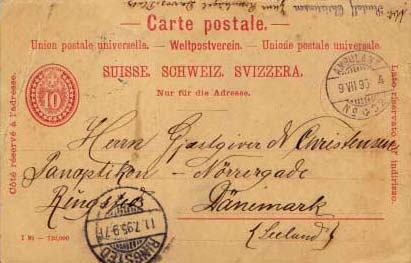 Carte postale.
Union postale universelle. — Weltpostverein. — Unione postale universale.
SUISSE. SCHWEIZ. SVIZZERA.
Nur für die Adresse.
Côté réservé à l'adresse.
10
Lato riservato all' indirizzo.
AMBULANT
9 VII 95
4
Herrn Gjæstgiver N Christensen
Panoptikon - Nörregade
Ringsted
Dänemark
(Seeland)
RINGSTED
11.7.95.9-